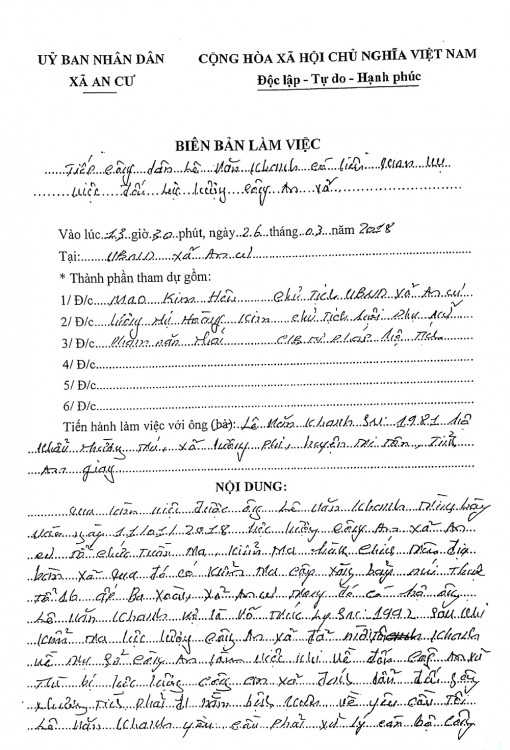 UỶ BAN NHÂN DÂN
CỘNG HÒA XÃ HỘI CHỦ NGHĨA VIỆT NAM
XÃ AN CƯ
Độc lập - Tự do - Hạnh phúc
BIÊN BẢN LÀM VIỆC
Tiếp công dân Lê Văn Khanh có liên quan vụ
việc đối lực lượng công An xã
Vào lúc 13 giờ 30 phút, ngày 26 tháng 03 năm 2018
Tại: UBND xã An cư
* Thành phần tham dự gồm:
1/ Đ/c Mao Kim chủ tịch UBND xã An cư
2/ Đ/c Hoàng Kim chủ tịch hội phụ nữ
3/ Đ/c Phạm văn CB tư pháp hộ tịch
4/ Đ/c
5/ Đ/c
6/ Đ/c
Tiến hành làm việc với ông (bà): Lê Văn Khanh SN: 1981 hộ
khẩu xã Lương phi, huyện Tri Tôn, Tỉnh
An giang
NỘI DUNG:
Qua làm việc được ông Lê Văn Khanh trình bày
vào ngày 11/01/2018 lực lượng công An xã An
cư tổ chức Tuần tra, kiểm tra hành chính trên địa
bàn xã qua đó có kiểm tra
tổ 16 ấp Ba xoài, xã An cư trong đó có hộ ông
Lê Văn Khanh vợ là Võ Thúc Ly SN: 1992 sau khi
kiểm tra lực lượng công An xã đã mời Khanh
về trụ sở công An làm việc khi về đến công An xã
Thì bị lực lượng công an xã đánh dẫn đến gãy
xương phải đi nằm bệnh viện và yêu cầu
Lê Văn Khanh yêu cầu phải xử lý cán bộ công